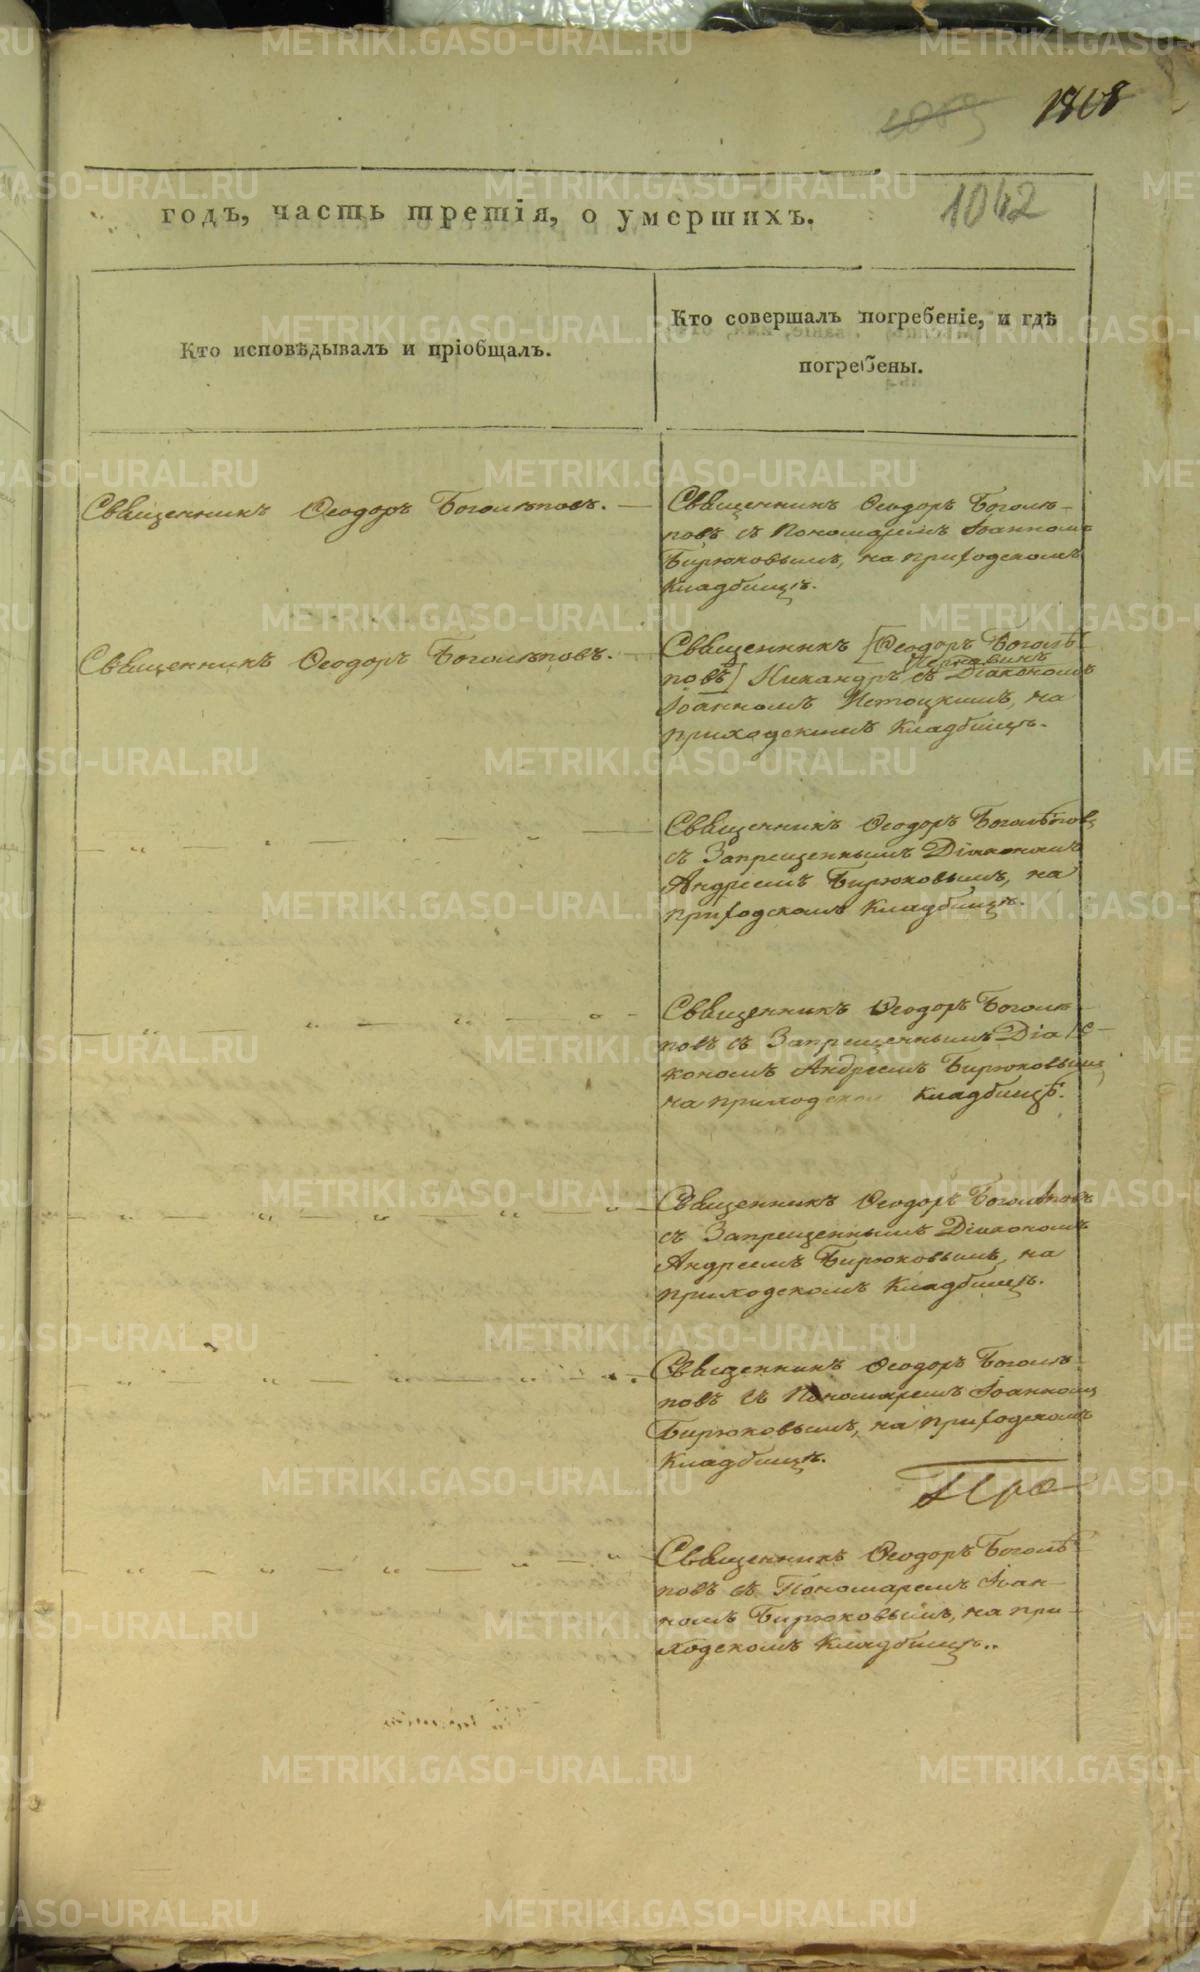 1868
1042
годъ, часть третія, о умершихъ.
Кто исповѣдывалъ и пріобщалъ.
Кто совершалъ погребеніе, и гдѣ
погребены.
Священникъ Ѳеодоръ Боголѣповъ. —
Священникъ Ѳеодоръ Боголѣ-
повъ съ Пономаремъ Іоанномъ
Бирюковымъ, на приходскомъ
Кладбищѣ.
Священникъ Ѳеодоръ Боголѣповъ. —
Священникъ [Ѳеодоръ Боголѣ-
повъ] Никандръ съ Діакономъ
Іоанномъ Истоцкимъ, на
приходскомъ Кладбищѣ.
Священникъ Ѳеодоръ Боголѣповъ
съ Запрещеннымъ Діакономъ
Андреемъ Бирюковымъ, на
приходскомъ Кладбищѣ.
Священникъ Ѳеодоръ Боголѣ-
повъ съ Запрещеннымъ Діа-
кономъ Андреемъ Бирюковымъ,
на приходском Кладбищѣ.
Священникъ Ѳеодоръ Боголѣповъ
съ Запрещеннымъ Діакономъ
Андреемъ Бирюковымъ, на
приходскомъ Кладбищѣ.
Священникъ Ѳеодоръ Боголѣ-
повъ съ Пономаремъ Іоанномъ
Бирюковымъ, на приходскомъ
Кладбищѣ.
Про
Священникъ Ѳеодоръ Боголѣ-
повъ съ Пономаремъ Іоан-
номъ Бирюковымъ, на при-
ходскомъ Кладбищѣ..
METRIKI.GASO-URAL.RU